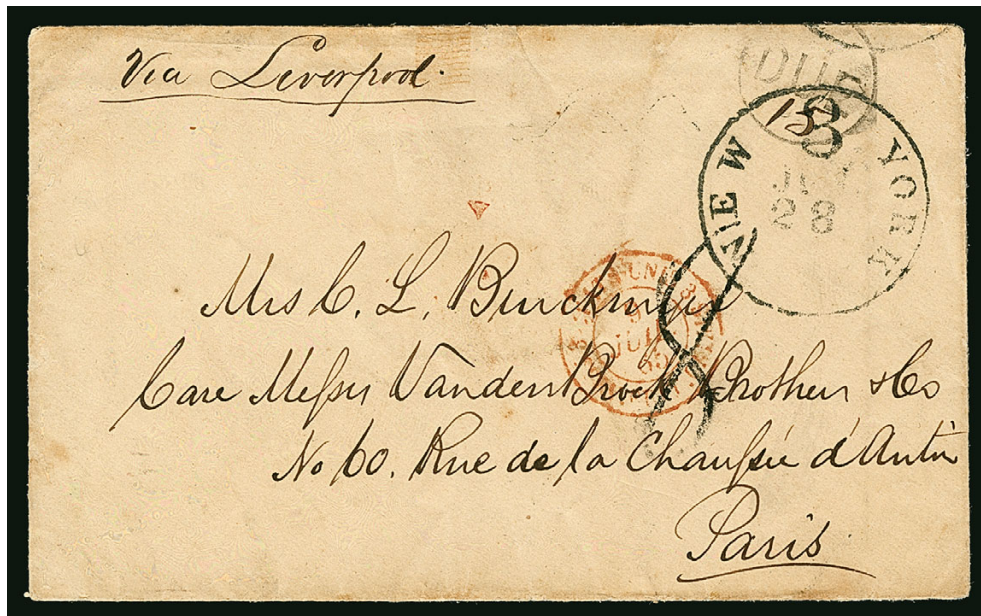 Via Liverpool.
DUE
15
NEW YORK
8
28
Mrs C. L. Burckmyer
Care Messrs VandenBroek Brothers & Co
No 60. Rue de la Chaussée d'Antin
Paris